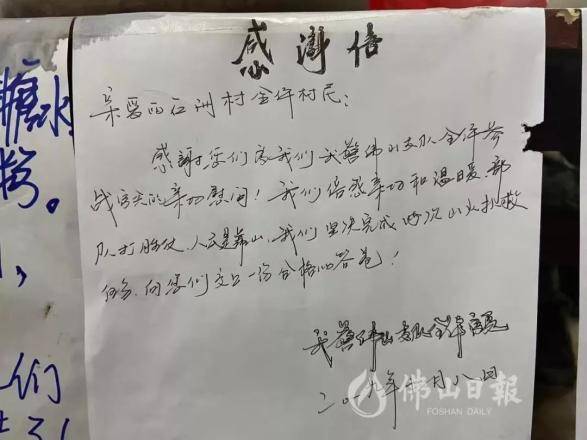 感谢信
亲爱的石洲村全体村民：
感谢您们为我们武警佛山支队全体参
战官兵的亲切慰问！我们倍感亲切和温暖，部
队打胜仗，人民是靠山，我们坚决完成此次山火扑救
任务，向您们交上一份合格的答卷！
武警佛山支队全体官兵
二〇一九年十二月八日
佛山日報
FOSHAN DAILY
糖水
粥。
们